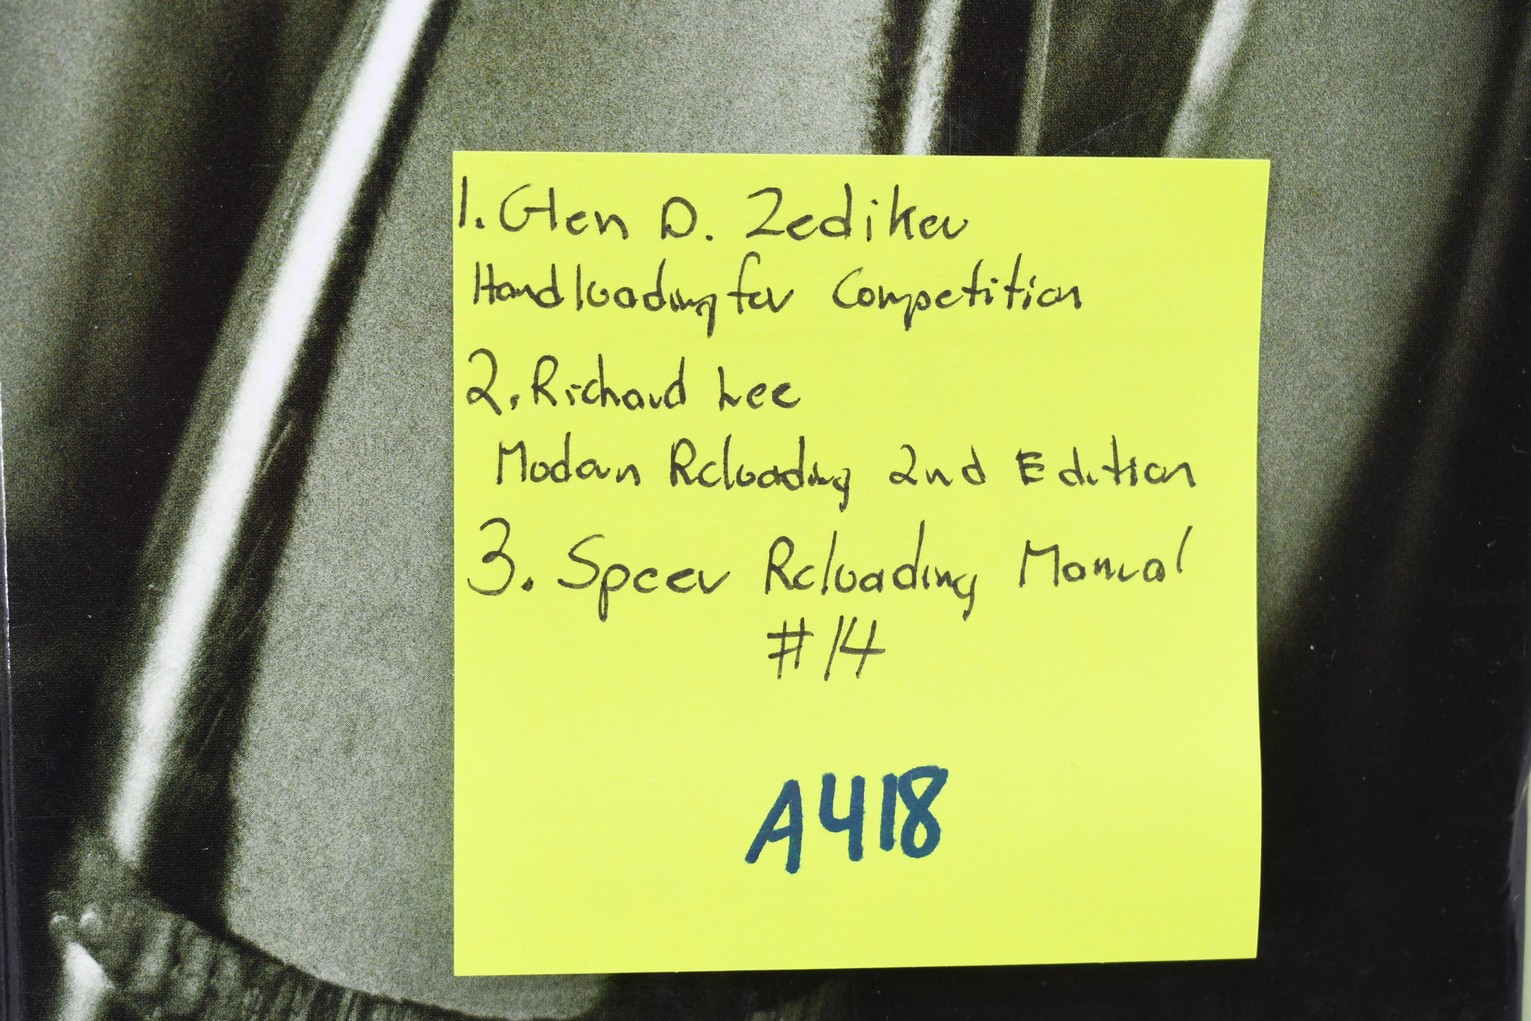 1. Glen D. Zediker
Handloading for Competition
2. Richard Lee
Modern Reloading 2nd Edition
3. Speer Reloading Manual
#14
A418